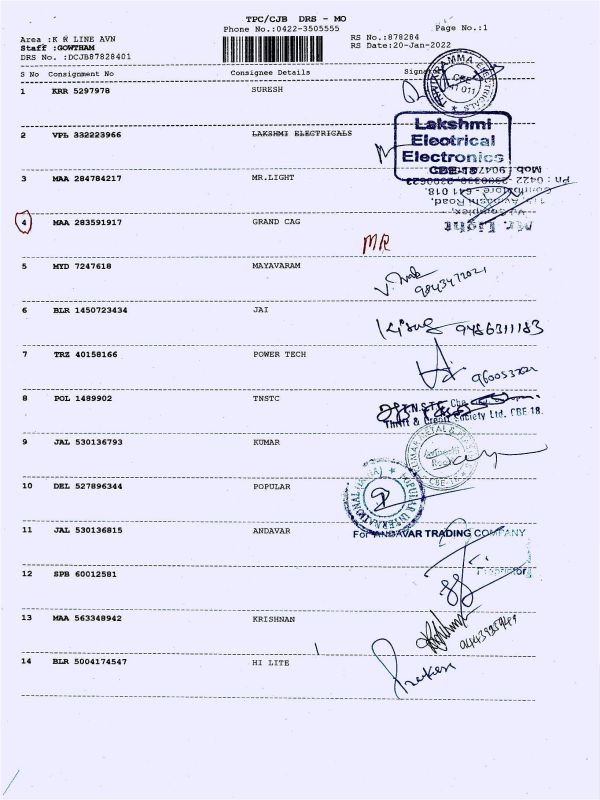 TPC/CJB DRS - MO
Phone No.:0422-3505555 Page No.:1
Area :K R LINE AVN RS No.:878284
Staff :GOWTHAM RS Date:20-Jan-2022
DRS No. :DCJB87828401
S No Consignment No Consignee Details
1 KRR 5297978 SURESH
2 VPL 332223966 LAKSHMI ELECTRICALS
Lakshmi
Electrical
Electronics
3 MAA 284784217 MR.LIGHT
Mr. Light
4 MAA 283591917 GRAND CAG
MR
5 MYD 7247618 MAYAVARAM
6 BLR 1450723434 JAI
9486311183
7 TRZ 40158166 POWER TECH
8 POL 1489902 TNSTC
Thrift & Credit Society Ltd. CBE 18.
9 JAL 530136793 KUMAR
10 DEL 527896344 POPULAR
POPULAR INTERNATIONAL
11 JAL 530136815 ANDAVAR
For ANDAVAR TRADING COMPANY
Proprietor
12 SPB 60012581
13 MAA 563348942 KRISHNAN
14 BLR 5004174547 HI LITE